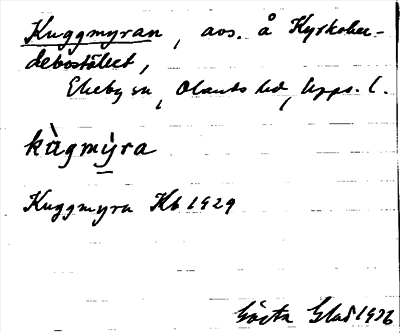 Kuggmyran, avs. å Kyrkoher-
debostället,
Ekeby sn, Olands hd, Upps. l.
kùgmy̆ra
Kuggmyra Hb 1929
Gösta 1936